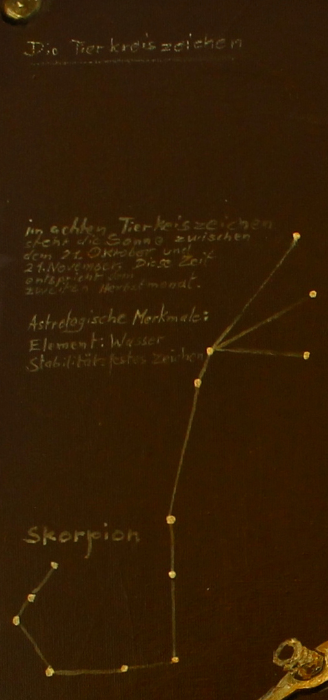 Die Tierkreiszeichen
im achten Tierkeiszeichen
steht die Sonne zwischen
dem 21. Oktober und
21. November. Diese Zeit
entspricht dem
zweiten Herbstmonat.
Astrologische Merkmale:
Element: Wasser
Stabilität: festes Zeichen
Skorpion